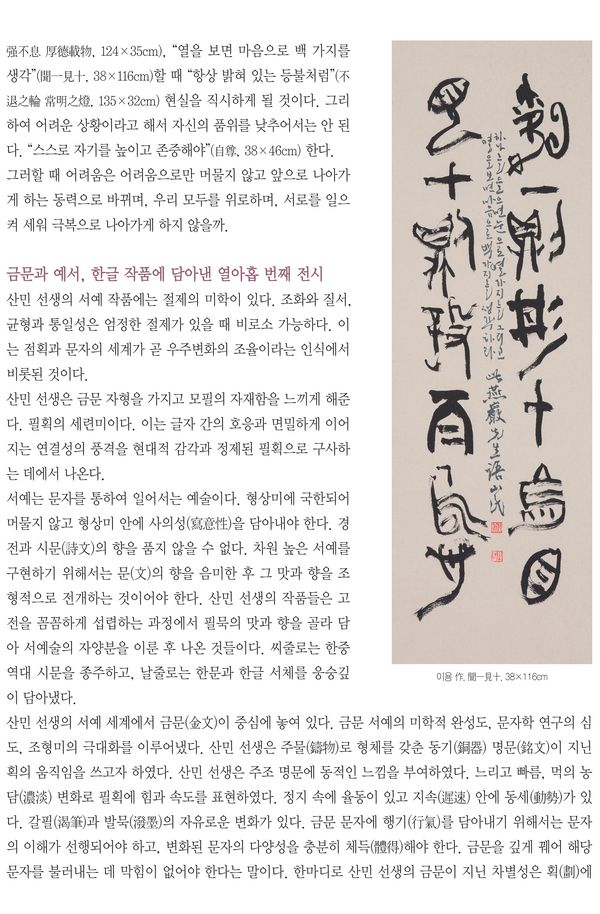 强不息 厚德載物, 124×35cm), “열을 보면 마음으로 백 가지를
생각”(聞一見十, 38×116cm)할 때 “항상 밝혀 있는 등불처럼”(不
退之輪 常明之燈, 135×32cm) 현실을 직시하게 될 것이다. 그리
하여 어려운 상황이라고 해서 자신의 품위를 낮추어서는 안 된
다. “스스로 자기를 높이고 존중해야”(自尊, 38×46cm) 한다.
그러할 때 어려움은 어려움으로만 머물지 않고 앞으로 나아가
게 하는 동력으로 바뀌며, 우리 모두를 위로하며, 서로를 일으
켜 세워 극복으로 나아가게 하지 않을까.
금문과 예서, 한글 작품에 담아낸 열아홉 번째 전시
산민 선생의 서예 작품에는 절제의 미학이 있다. 조화와 질서,
균형과 통일성은 엄정한 절제가 있을 때 비로소 가능하다. 이
는 점획과 문자의 세계가 곧 우주변화의 조율이라는 인식에서
비롯된 것이다.
산민 선생은 금문 자형을 가지고 모필의 자재함을 느끼게 해준
다. 필획의 세련미이다. 이는 글자 간의 호응과 면밀하게 이어
지는 연결성의 풍격을 현대적 감각과 정제된 필획으로 구사하
는 데에서 나온다.
서예는 문자를 통하여 일어서는 예술이다. 형상미에 국한되어
머물지 않고 형상미 안에 사의성(寫意性)을 담아내야 한다. 경
전과 시문(詩文)의 향을 품지 않을 수 없다. 차원 높은 서예를
구현하기 위해서는 문(文)의 향을 음미한 후 그 맛과 향을 조
형적으로 전개하는 것이어야 한다. 산민 선생의 작품들은 고
전을 꼼꼼하게 섭렵하는 과정에서 필묵의 맛과 향을 골라 담
아 서예술의 자양분을 이룬 후 나온 것들이다. 씨줄로는 한중
역대 시문을 종주하고, 날줄로는 한문과 한글 서체를 웅숭깊
이 담아냈다.
一
十
十
百
하나를 들으면 눈으로 열 가지를 그리고
열을 보면 마음으로 백 가지를 생각하라
此燕巖先生語 山民
이용 作, 聞一見十, 38×116cm
산민 선생의 서예 세계에서 금문(金文)이 중심에 놓여 있다. 금문 서예의 미학적 완성도, 문자학 연구의 심
도, 조형미의 극대화를 이루어냈다. 산민 선생은 주물(鑄物)로 형체를 갖춘 동기(銅器) 명문(銘文)이 지닌
획의 움직임을 쓰고자 하였다. 산민 선생은 주조 명문에 동적인 느낌을 부여하였다. 느리고 빠름, 먹의 농
담(濃淡) 변화로 필획에 힘과 속도를 표현하였다. 정지 속에 율동이 있고 지속(遲速) 안에 동세(動勢)가 있
다. 갈필(渴筆)과 발묵(潑墨)의 자유로운 변화가 있다. 금문 문자에 행기(行氣)를 담아내기 위해서는 문자
의 이해가 선행되어야 하고, 변화된 문자의 다양성을 충분히 체득(體得)해야 한다. 금문을 깊게 꿰어 해당
문자를 불러내는 데 막힘이 없어야 한다는 말이다. 한마디로 산민 선생의 금문이 지닌 차별성은 획(劃)에